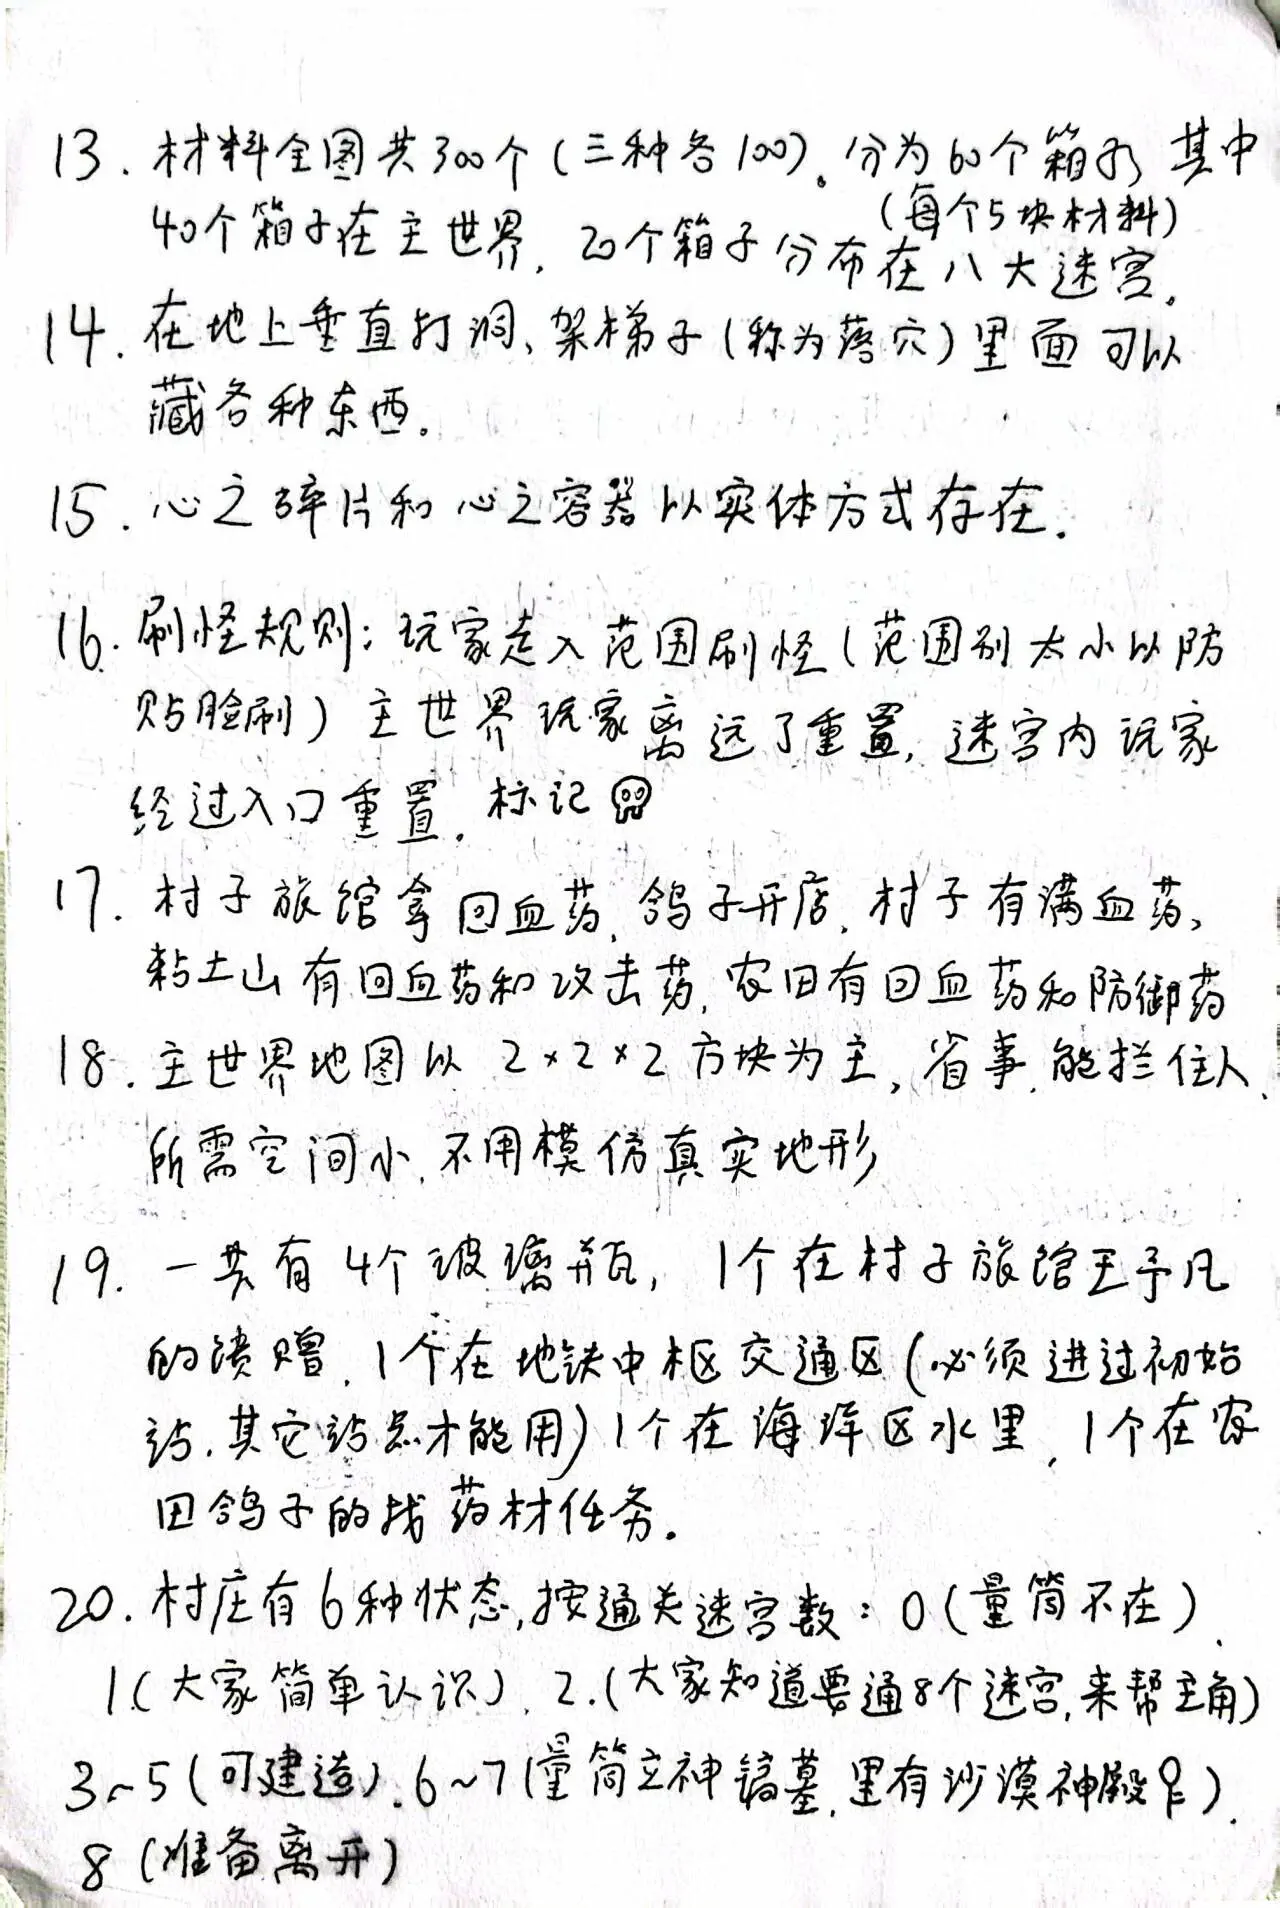 13. 材料全图共300个(三种各100)。分为60个箱子 其中
(每个5块材料)
40个箱子在主世界, 20个箱子分布在八大迷宫。
14. 在地上垂直打洞、架梯子(称为落穴)里面可以
藏各种东西。
15. 心之碎片和心之容器以实体方式存在.
16. 刷怪规则:玩家走入范围刷怪(范围别太小以防
贴脸刷) 主世界玩家离远了重置, 迷宫内玩家
经过入口重置. 标记
17. 村子旅馆拿回血药, 鸽子开店, 村子有满血药、
粘土山有回血药和攻击药, 农田有回血药和防御药
18. 主世界地图以 2×2×2方块为主, 省事, 能拦住人、
所需空间小, 不用模仿真实地形
19. 一共有4个玻璃瓶, 1个在村子旅馆王予凡
的馈赠, 1个在地铁中枢交通区(必须进过初始
站, 其它站点才能用) 1个在海洋区水里, 1个在农
田鸽子的找药材任务。
20. 村庄有6种状态, 按通关迷宫数: 0(量筒不在)、
1(大家简单认识), 2.(大家知道要通8个迷宫, 来帮主角)
3~5(可建造), 6~7(量筒立神镐墓, 里有沙漠神殿) .
8 (准备离开)